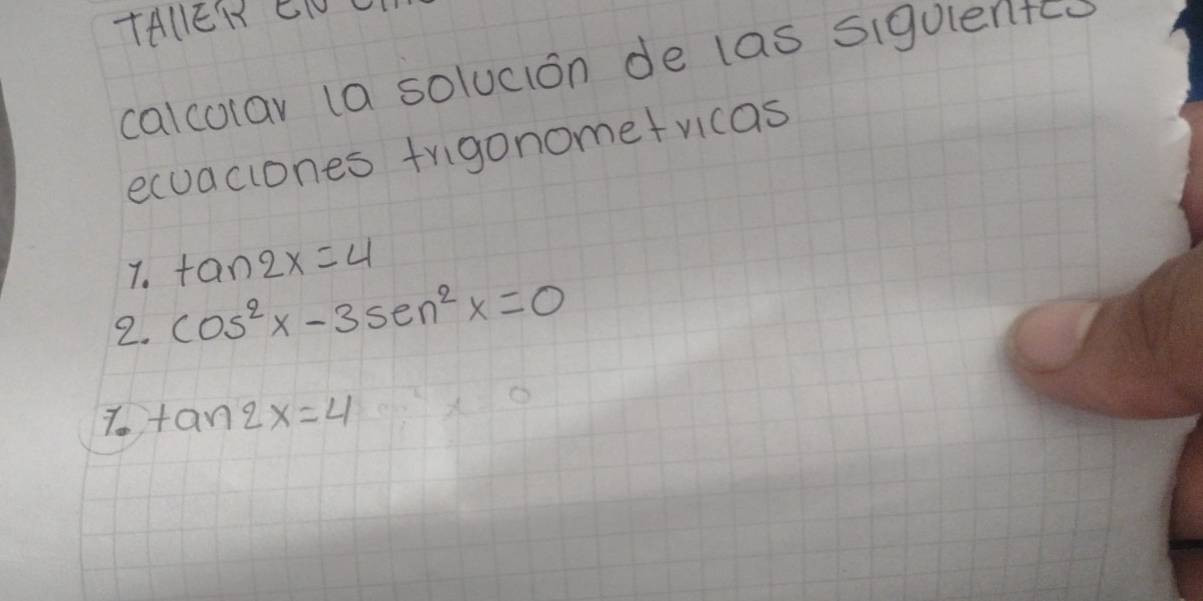 TAllER EN
calcular la solución de las siguientes
ecuaciones trigonometricas
1. tan2x=4
2. cos²x-3sen²x=0
1. tan2x=4